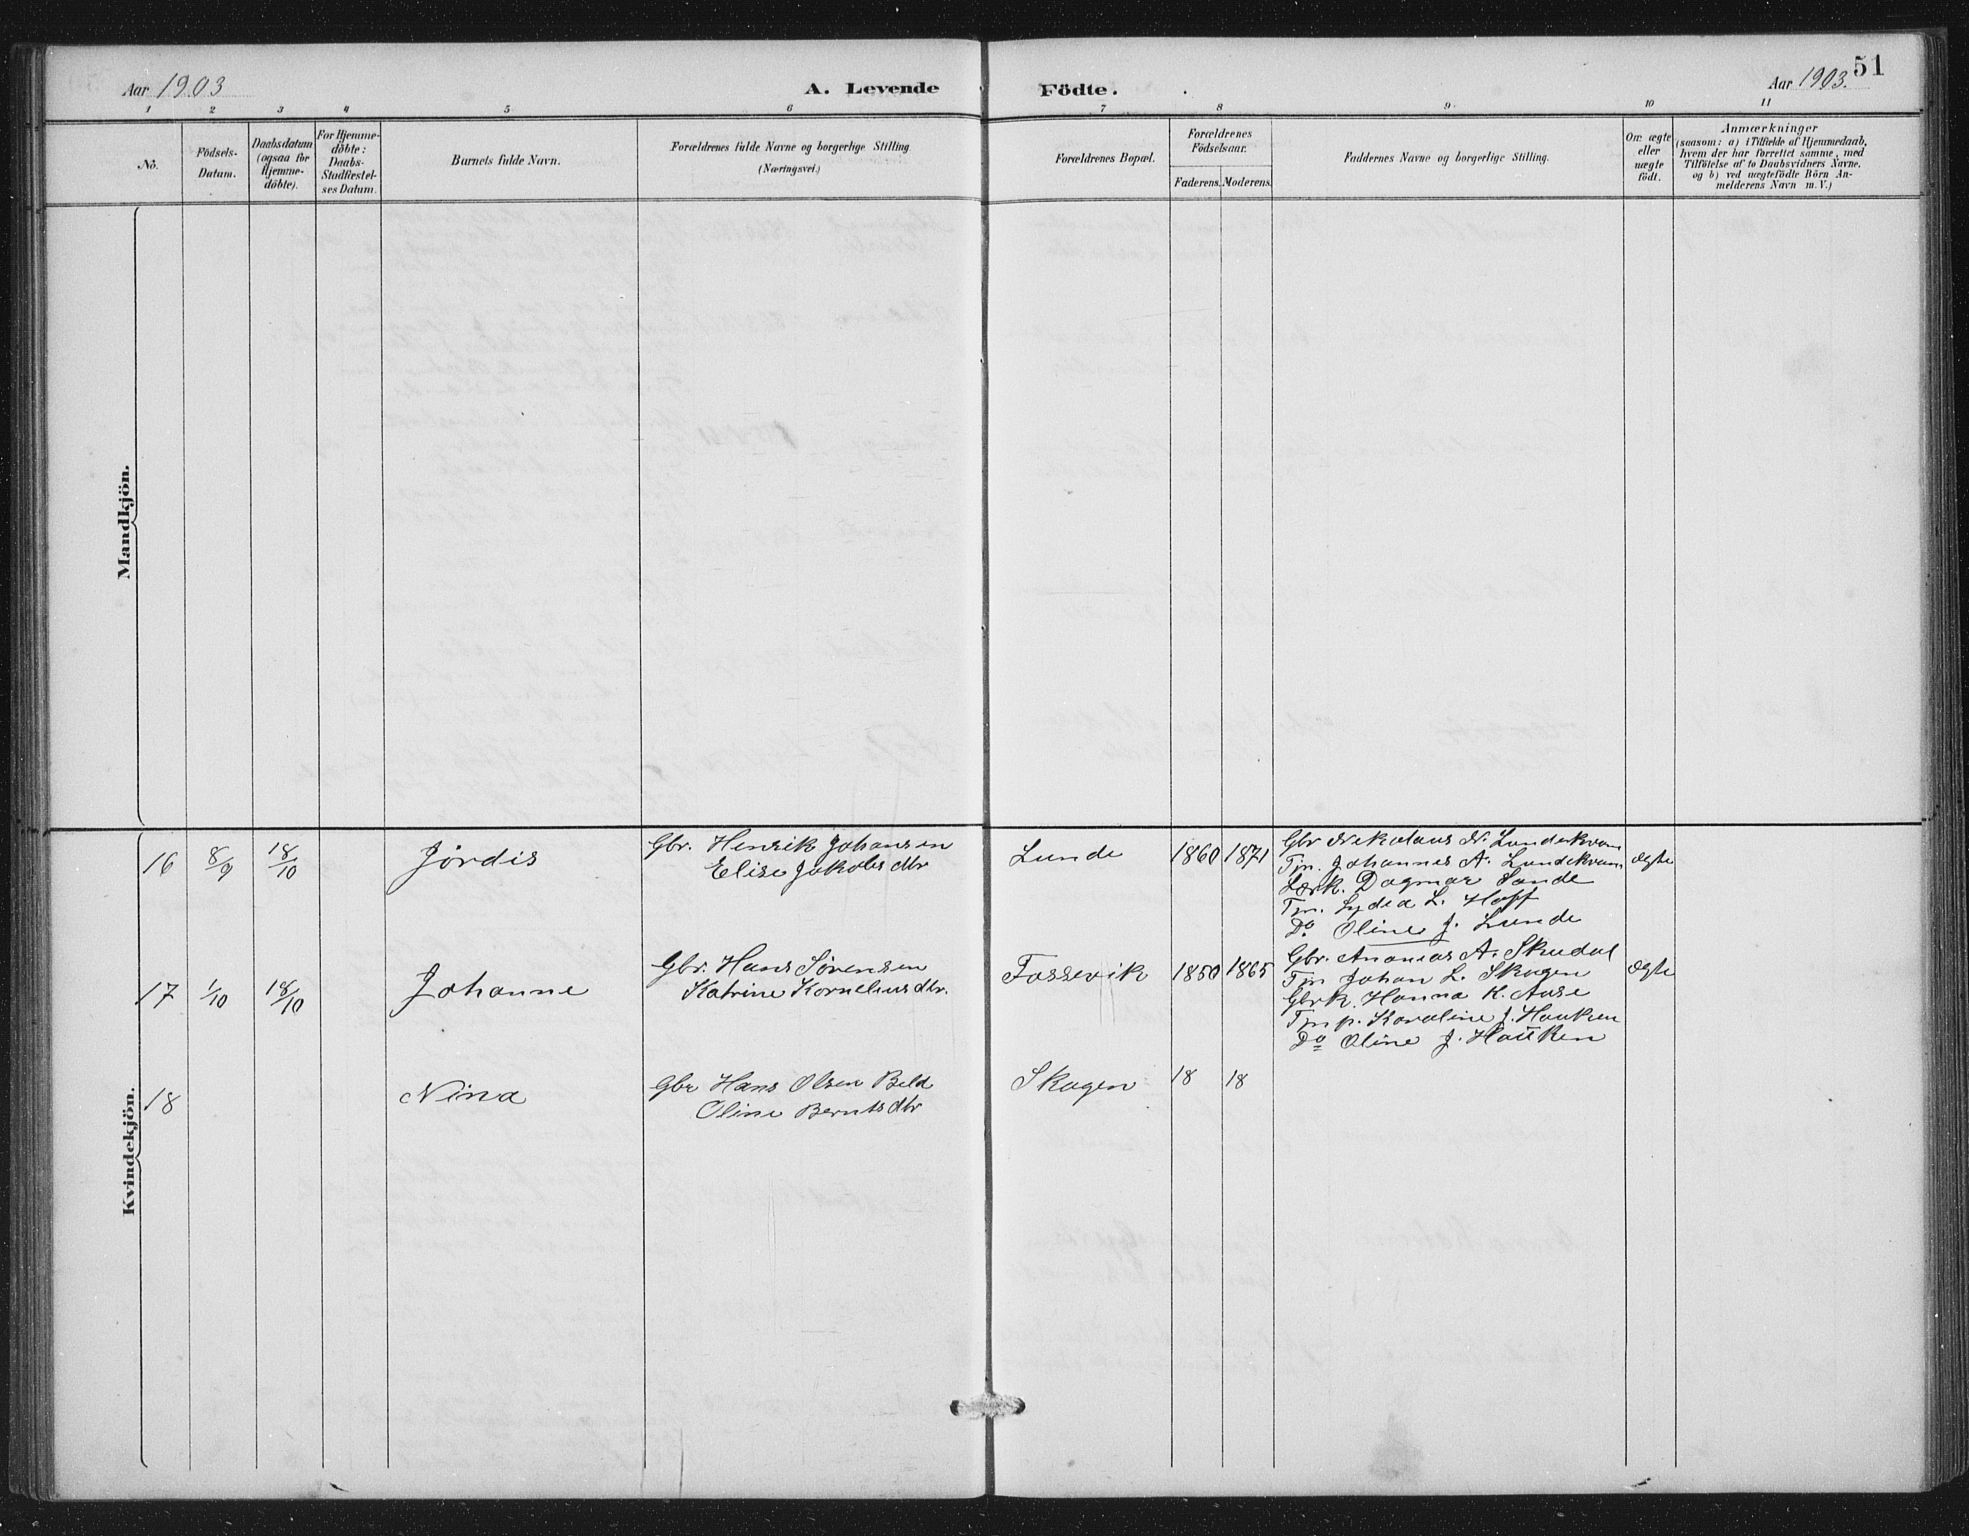 51
Aar 1903
A. Levende
Födte.
Aar 1903.
1 2 3 4 5 6 7 8 9 10 11
Nö.
Födsels-
Datum.
Daabsdatum
(ogsaa for
Hjemme-
döbte).
For Hjemme-
döbte:
Daabs-
Stadfæstel-
ses Datum.
Barnets fulde Navn.
Forældrenes fulde Navne og borgerlige Stilling
(Næringsvei.)
Forældrenes Bopæl.
Forældrenes
Födselsaar.
Faderens. Moderens.
Faddernes Navne og borgerlige Stilling.
Om ægte
eller
uægte
födt.
Anmærkninger
(saasom: a) i Tilfælde af Hjemmedaab,
hvem der har forrettet samme, med
Tilföielse af to Daabsvidners Navne.
og b) ved uægtefödte Börn An-
melderens Navn m. V.)
Mandkjön.
Kvindekjön.
16 8/9 18/10 Jørdis
Gbr. Henrik Johansen
Elise Jakobsdtr
Lunde 1860 1871
Gbr Nikolaus N. Lundekvam
Tjn. Johannes A. Lundekvam
Lærk. Dagmar Sande
Tjn. Lydia L. Hoff
Do Oline J. Lunde
ægte
17 1/10 18/10 Johanne
Gbr. Hans Sørensen
Katrine Korneliusdtr.
Fossevik 1850 1865
Gbr. Ananias A. Skudal
Tjn Johan L. Skogen
Gbrk. Hanna K. Aase
Tjn p. Karoline J. Hauken
Do Oline J. Hauken
ægte
18 Nina
Gbr Hans Olsen Beld
Oline Berntsdtr
Skogen 18 18